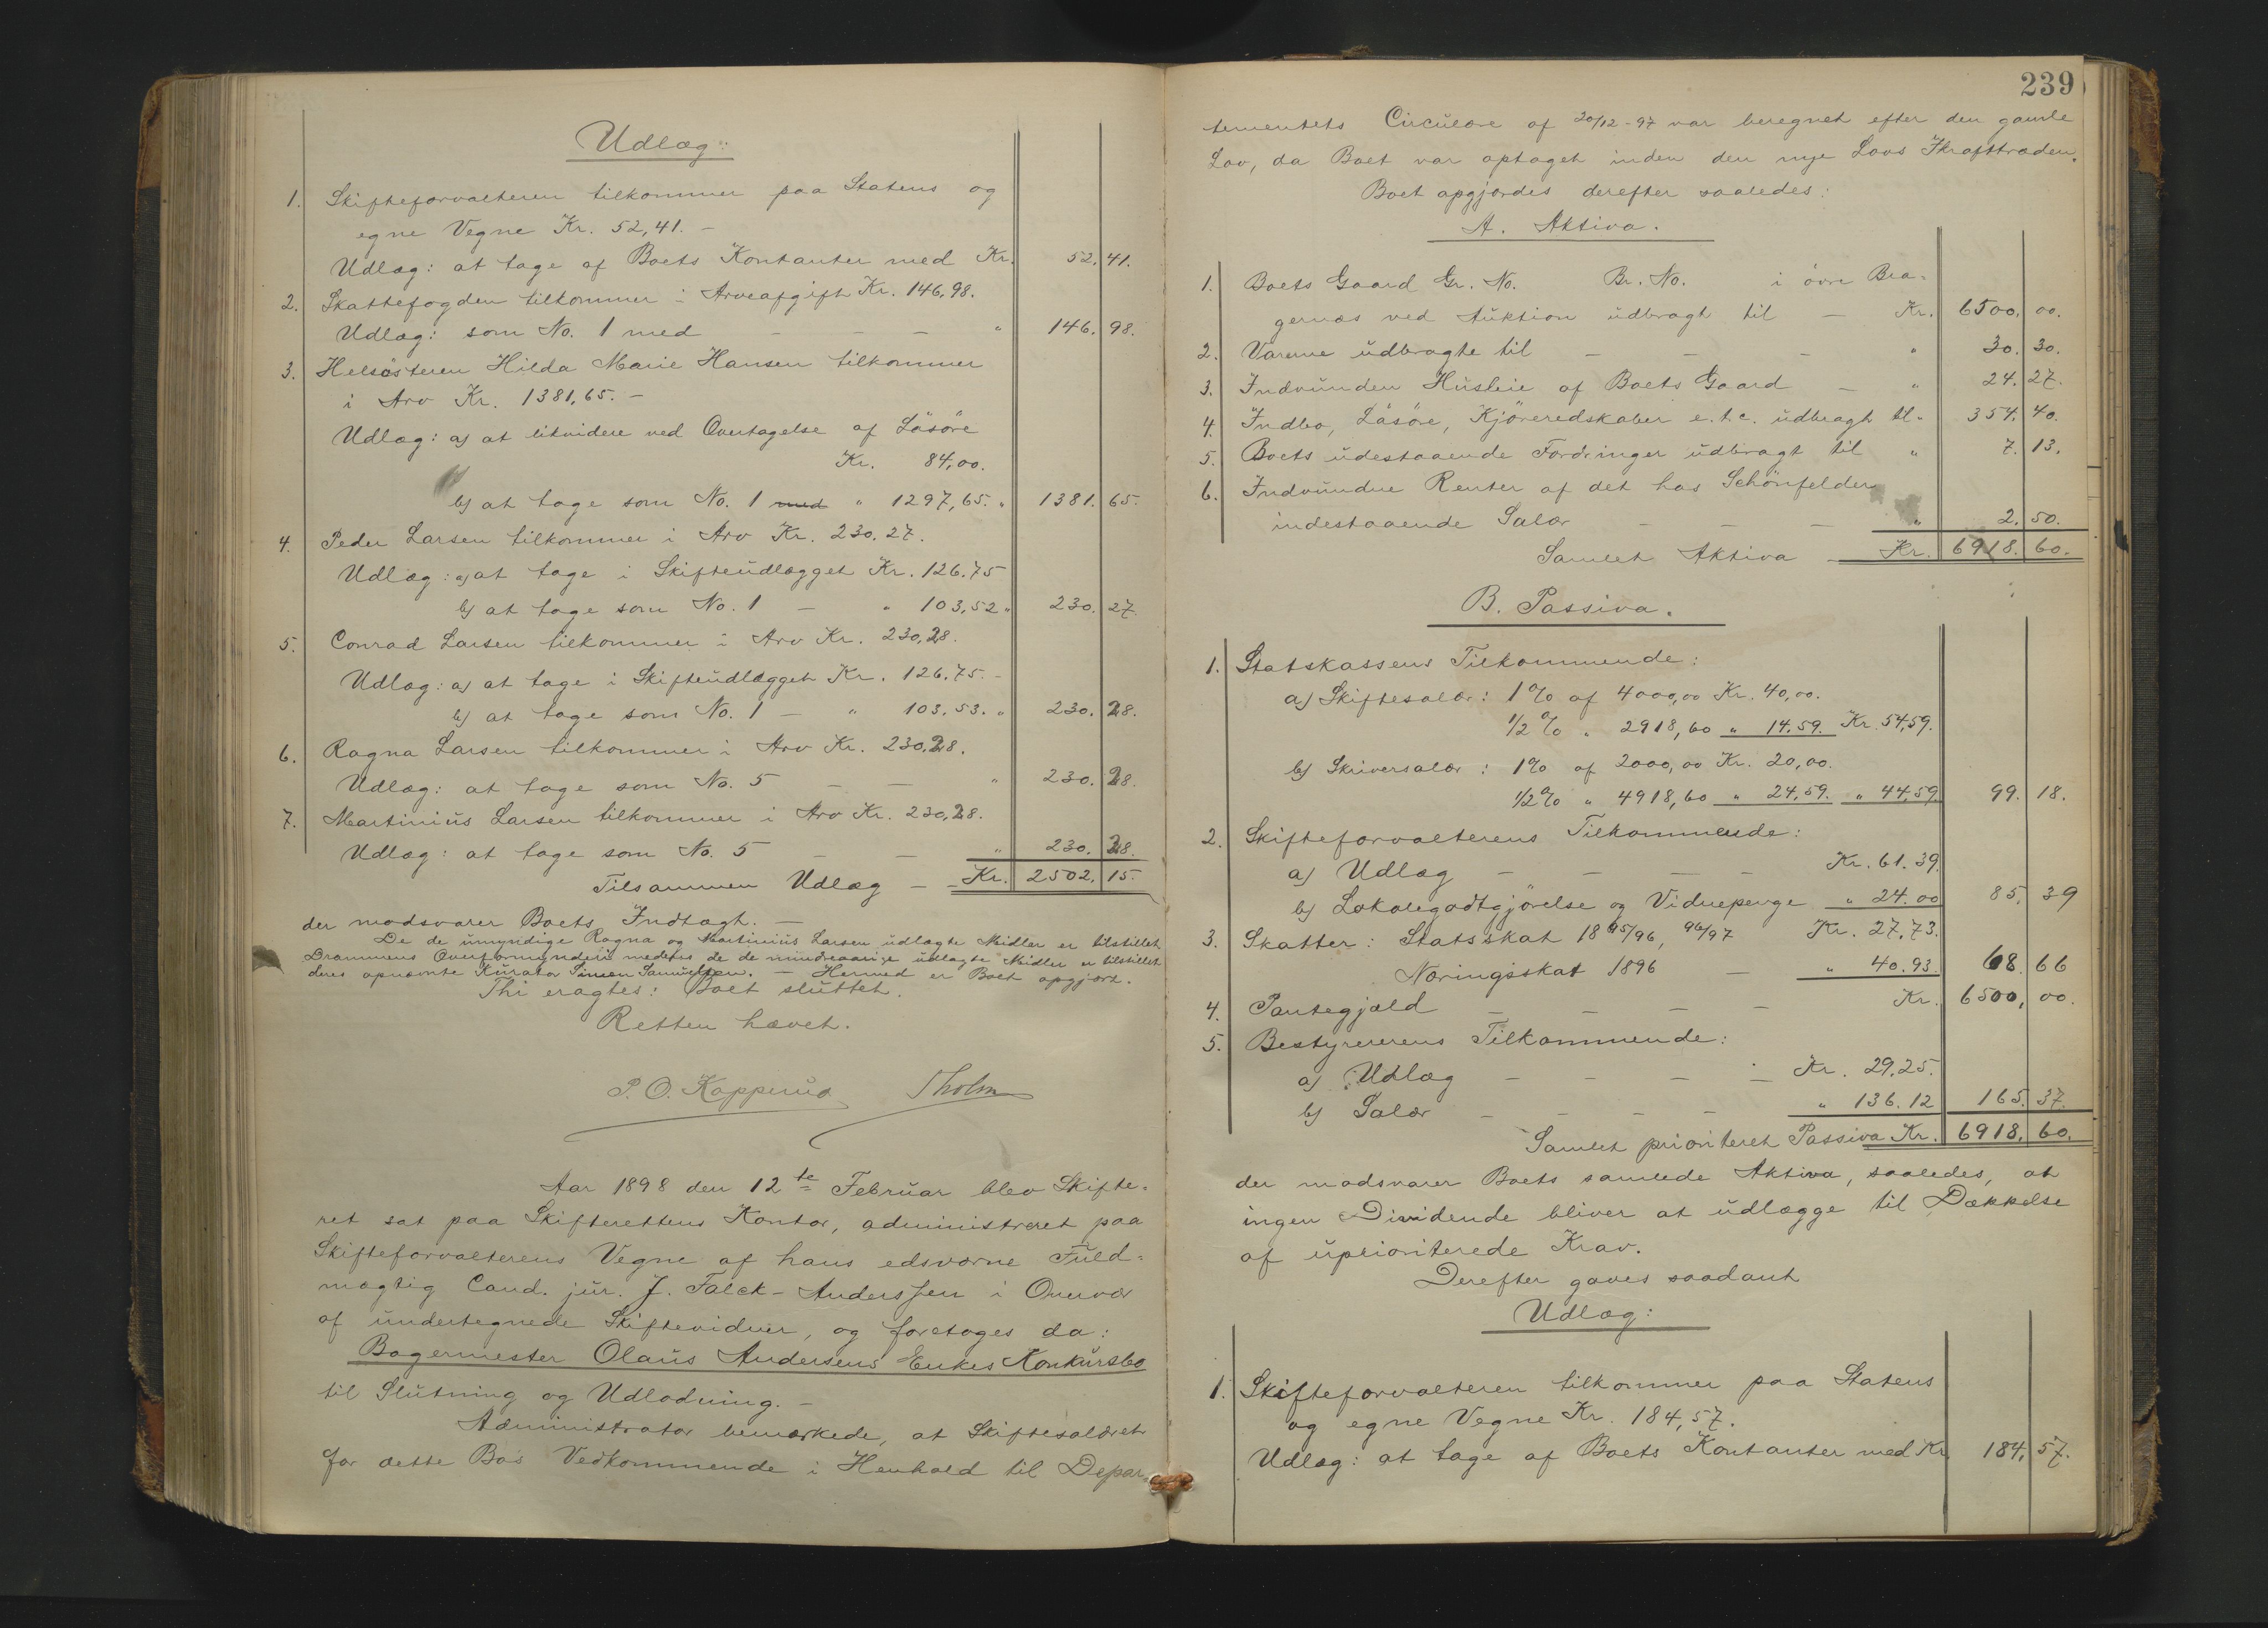 Udlæg:
1. Skifteforvalteren tilkommer paa Statens og
egne Vegne Kr. 52,41. –
Udlæg: at tage af Boets Kontanter med Kr. 52. 41.
2. Skattefogden tilkommer i Arveafgift Kr. 146,98.
Udlæg: som No. 1 med – – – " 146. 98.
3. Helsösteren Hilda Marie Hansen tilkommer
i Arv Kr. 1381,65. –
Udlæg: a) at likvidere ved Overtagelse af Lösöre
Kr. 84,00.
b) at tage som No. 1 med " 1297,65. " 1381. 65.
4. Peder Larsen tilkommer i Arv Kr. 230.27.
Udlæg: a) at tage i Skifteudlægget Kr. 126.75
b) at tage som No. 1 – " 103,52 " 230. 27.
5. Conrad Larsen tilkommer i Arv Kr. 230,28.
Udlæg: a) at tage i Skifteudlægget Kr. 126.75. –
b) at tage som No. 1 – " 103.53. " 230. 28.
6. Ragna Larsen tilkommer i Arv Kr. 230,28.
Udlæg: at tage som No. 5 – – " 230. 28.
7. Martinius Larsen tilkommer i Arv Kr. 230,28.
Udlæg: at tage som No. 5 – – " 230. 28.
Tilsammen Udlæg – – Kr. 2502. 15.
der modsvarer Boets Indtægt. –
De de umyndige Ragna og Martinius Larsen udlagte Midler er tilstillet
Drammens Overformynderi medens de de mindreaarige udlagte Midler er tilstillet
deres opnævnte Kurator Simen Samuelsen. – Hermed er Boet opgjort.
Thi eragtes: Boet sluttet.
Retten hævet.
P. O. Kopperud Tholm
Aar 1898 den 12te Februar blev Skifte-
ret sat paa Skifterettens Kontor, administreret paa
Skifteforvalterens Vegne af hans edsvorne Fuld-
mægtig Cand. jur. J. Falck-Anderssen i Overvær
af undertegnede Skiftevidner, og foretoges da:
Bagermester Olaus Andersens Enkes Konkursbo
til Slutning og Udlodning. –
Administrator bemærkede, at Skiftesalæret
for dette Bos Vedkommende i Henhold til Depar-
239
tementets Circulære af 20/12-97 var beregnet efter den gamle
Lov, da Boet var optaget inden den nye Lovs Ikrafttræden.
Boet opgjordes derefter saaledes:
A. Aktiva.
1. Boets Gaard Gr. No. Br. No. i övre Bra-
gernæs ved Auktion udbragt til – Kr. 6500, 00.
2. Varerne udbragte til – – – " 30. 30.
3. Indvunden Husleie af Boets Gaard – " 24. 27.
4. Indbo, Lösöre, Kjöreredskaber e.t.c. udbragt til " 354. 40.
5. Boets udestaaende Fordringer udbragt til " 7. 13.
6. Indvundne Renter af det hos Schönfelder
indestaaende Salær – – – " 2. 50.
Samlet Aktiva – Kr. 6918. 60.
B. Passiva.
1. Statskassens Tilkommende:
a) Skiftesalær: 1% af 4000,00 Kr. 40,00.
1/2% " 2918,60 " 14.59. Kr. 54,59.
b) Skriversalær: 1% af 2000,00 Kr. 20,00.
1/2% " 4918,60 " 24,59. " 44,59 99. 18.
2. Skifteforvalterens Tilkommende:
a) Udlæg – – – – Kr. 61.39.
b) Lokalegodtgjörelse og Vidnepenge " 24.00 85, 39
3. Skatter: Statsskat 1895/96, 96/97 Kr. 27,73.
Næringsskat 1896 – " 40.93. 68. 66
4. Pantegjæld – – – – Kr. 6500, 00.
5. Bestyrerens Tilkommende:
a) Udlæg – – – – Kr. 29,25.
b) Salær – – – – " 136.12 165. 37.
Samlet prioriteret Passiva Kr. 6918, 60.
der modsvarer Boets samlede Aktiva, saaledes, at
ingen Dividende bliver at udlægge til Dækkelse
af uprioriterede Krav.
Derefter gaves saadant
Udlæg:
1. Skifteforvalteren tilkommer paa Statens
og egne Vegne Kr. 184,57.
Udlæg: at tage af Boets Kontanter med Kr. 184, 57.